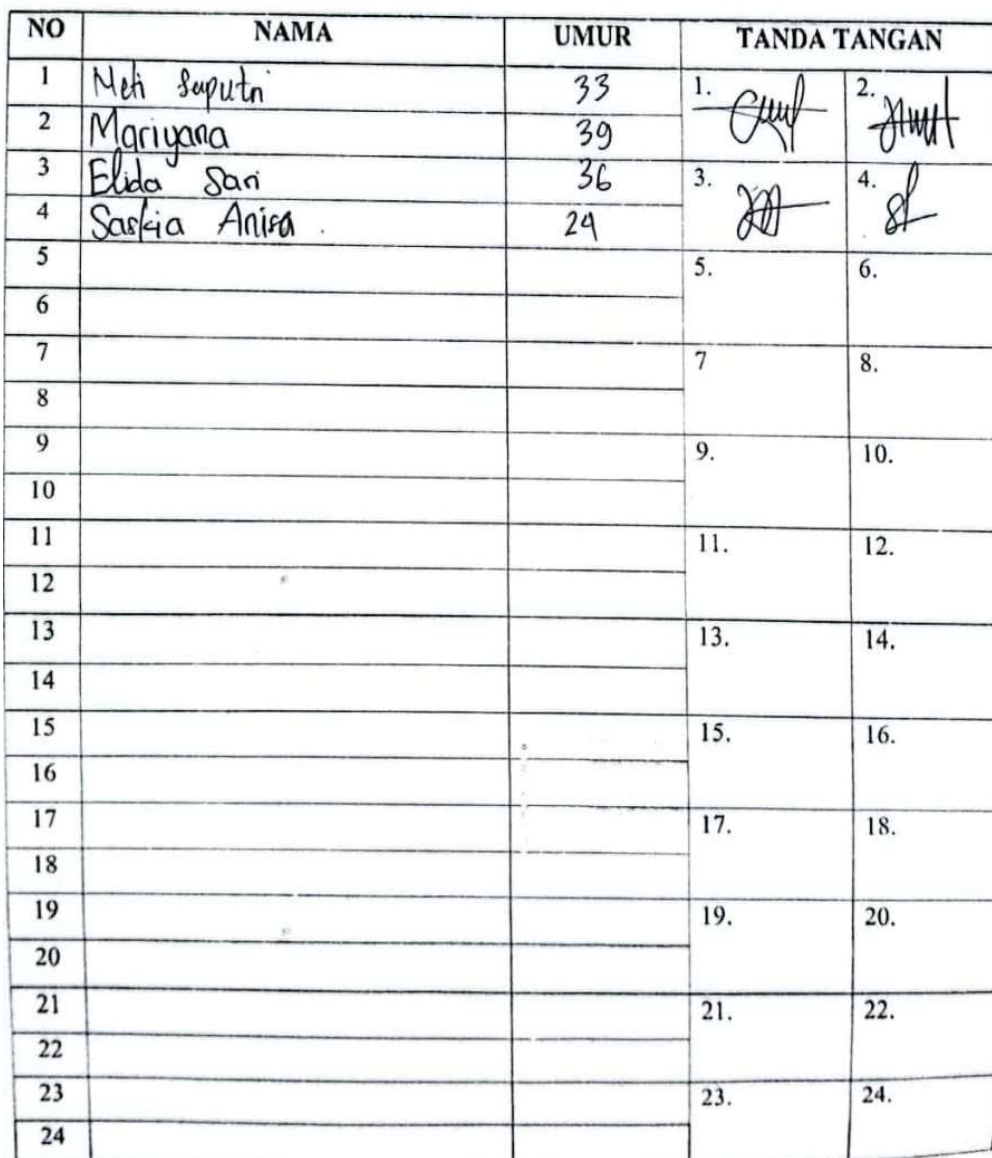 NO NAMA UMUR TANDA TANGAN
1 Meti Saputri 33 1. 2.
2 Mariyana 39
3 Elida Sari 36 3. 4.
4 Saskia Anisa 24
5 5. 6.
6
7 7 8.
8
9 9. 10.
10
11 11. 12.
12
13 13. 14.
14
15 15. 16.
16
17 17. 18.
18
19 19. 20.
20
21 21. 22.
22
23 23. 24.
24